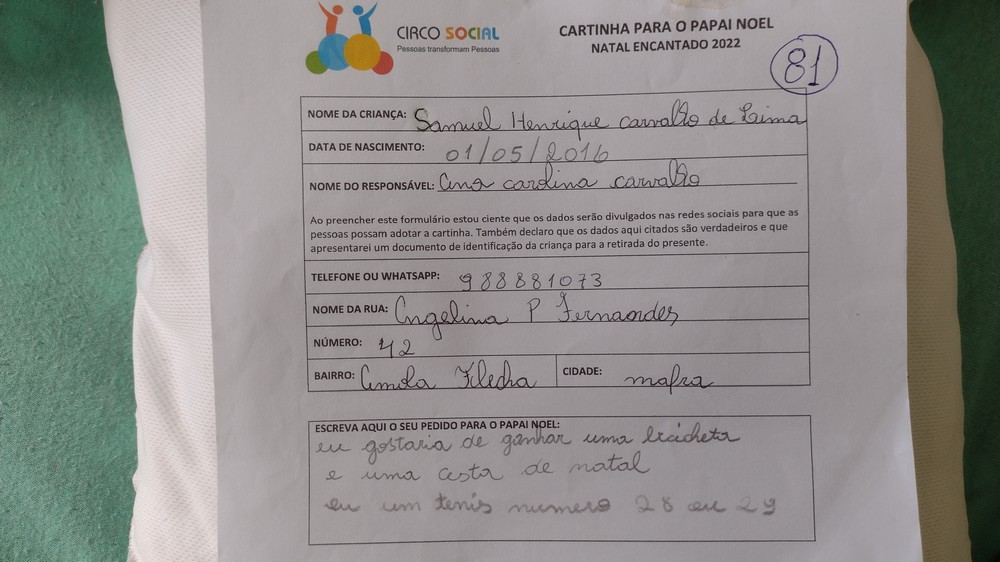 CIRCO SOCIAL
Pessoas transformam Pessoas
CARTINHA PARA O PAPAI NOEL
NATAL ENCANTADO 2022
81
NOME DA CRIANÇA: Samuel Henrique carvalho de Lima
DATA DE NASCIMENTO: 01/05/2016
NOME DO RESPONSÁVEL: Ana carolina carvalho
Ao preencher este formulário estou ciente que os dados serão divulgados nas redes sociais para que as
pessoas possam adotar a cartinha. Também declaro que os dados aqui citados são verdadeiros e que
apresentarei um documento de identificação da criança para a retirada do presente.
TELEFONE OU WHATSAPP: 988881073
NOME DA RUA: Engelina P Fernandes
NÚMERO: 42
BAIRRO: CIDADE: mafra
ESCREVA AQUI O SEU PEDIDO PARA O PAPAI NOEL:
eu gostaria de ganhar uma
e uma cesta de natal
eu um tenis numero 28 ou 29